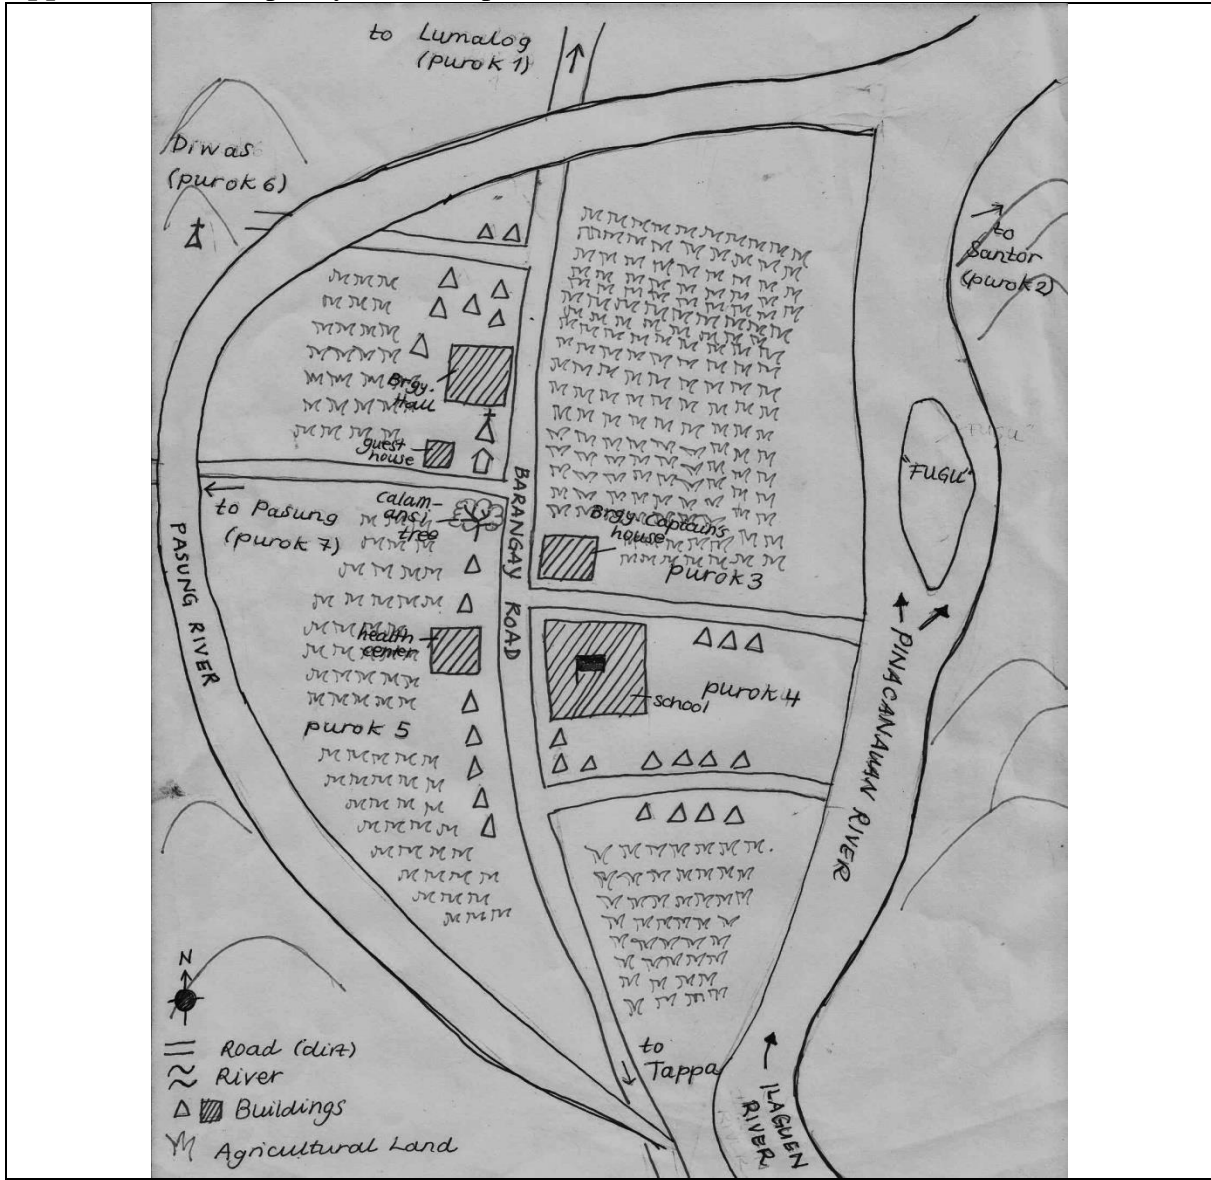 to Lumalog
(purok 1)
Diwas
(purok 6)
to
Santor
(purok 2)
Brgy.
Hall
guest
house
"FUGU"
calam-
ansi
tree
to Pasung
(purok 7)
BARANGAY ROAD
Brgy Captains
house
purok 3
PASUNG RIVER
health
center
school
purok 4
purok 5
PINACANAUAN RIVER
N
to
Tappa
ILAGUEN
RIVER
Road (dirt)
River
Buildings
Agricultural Land